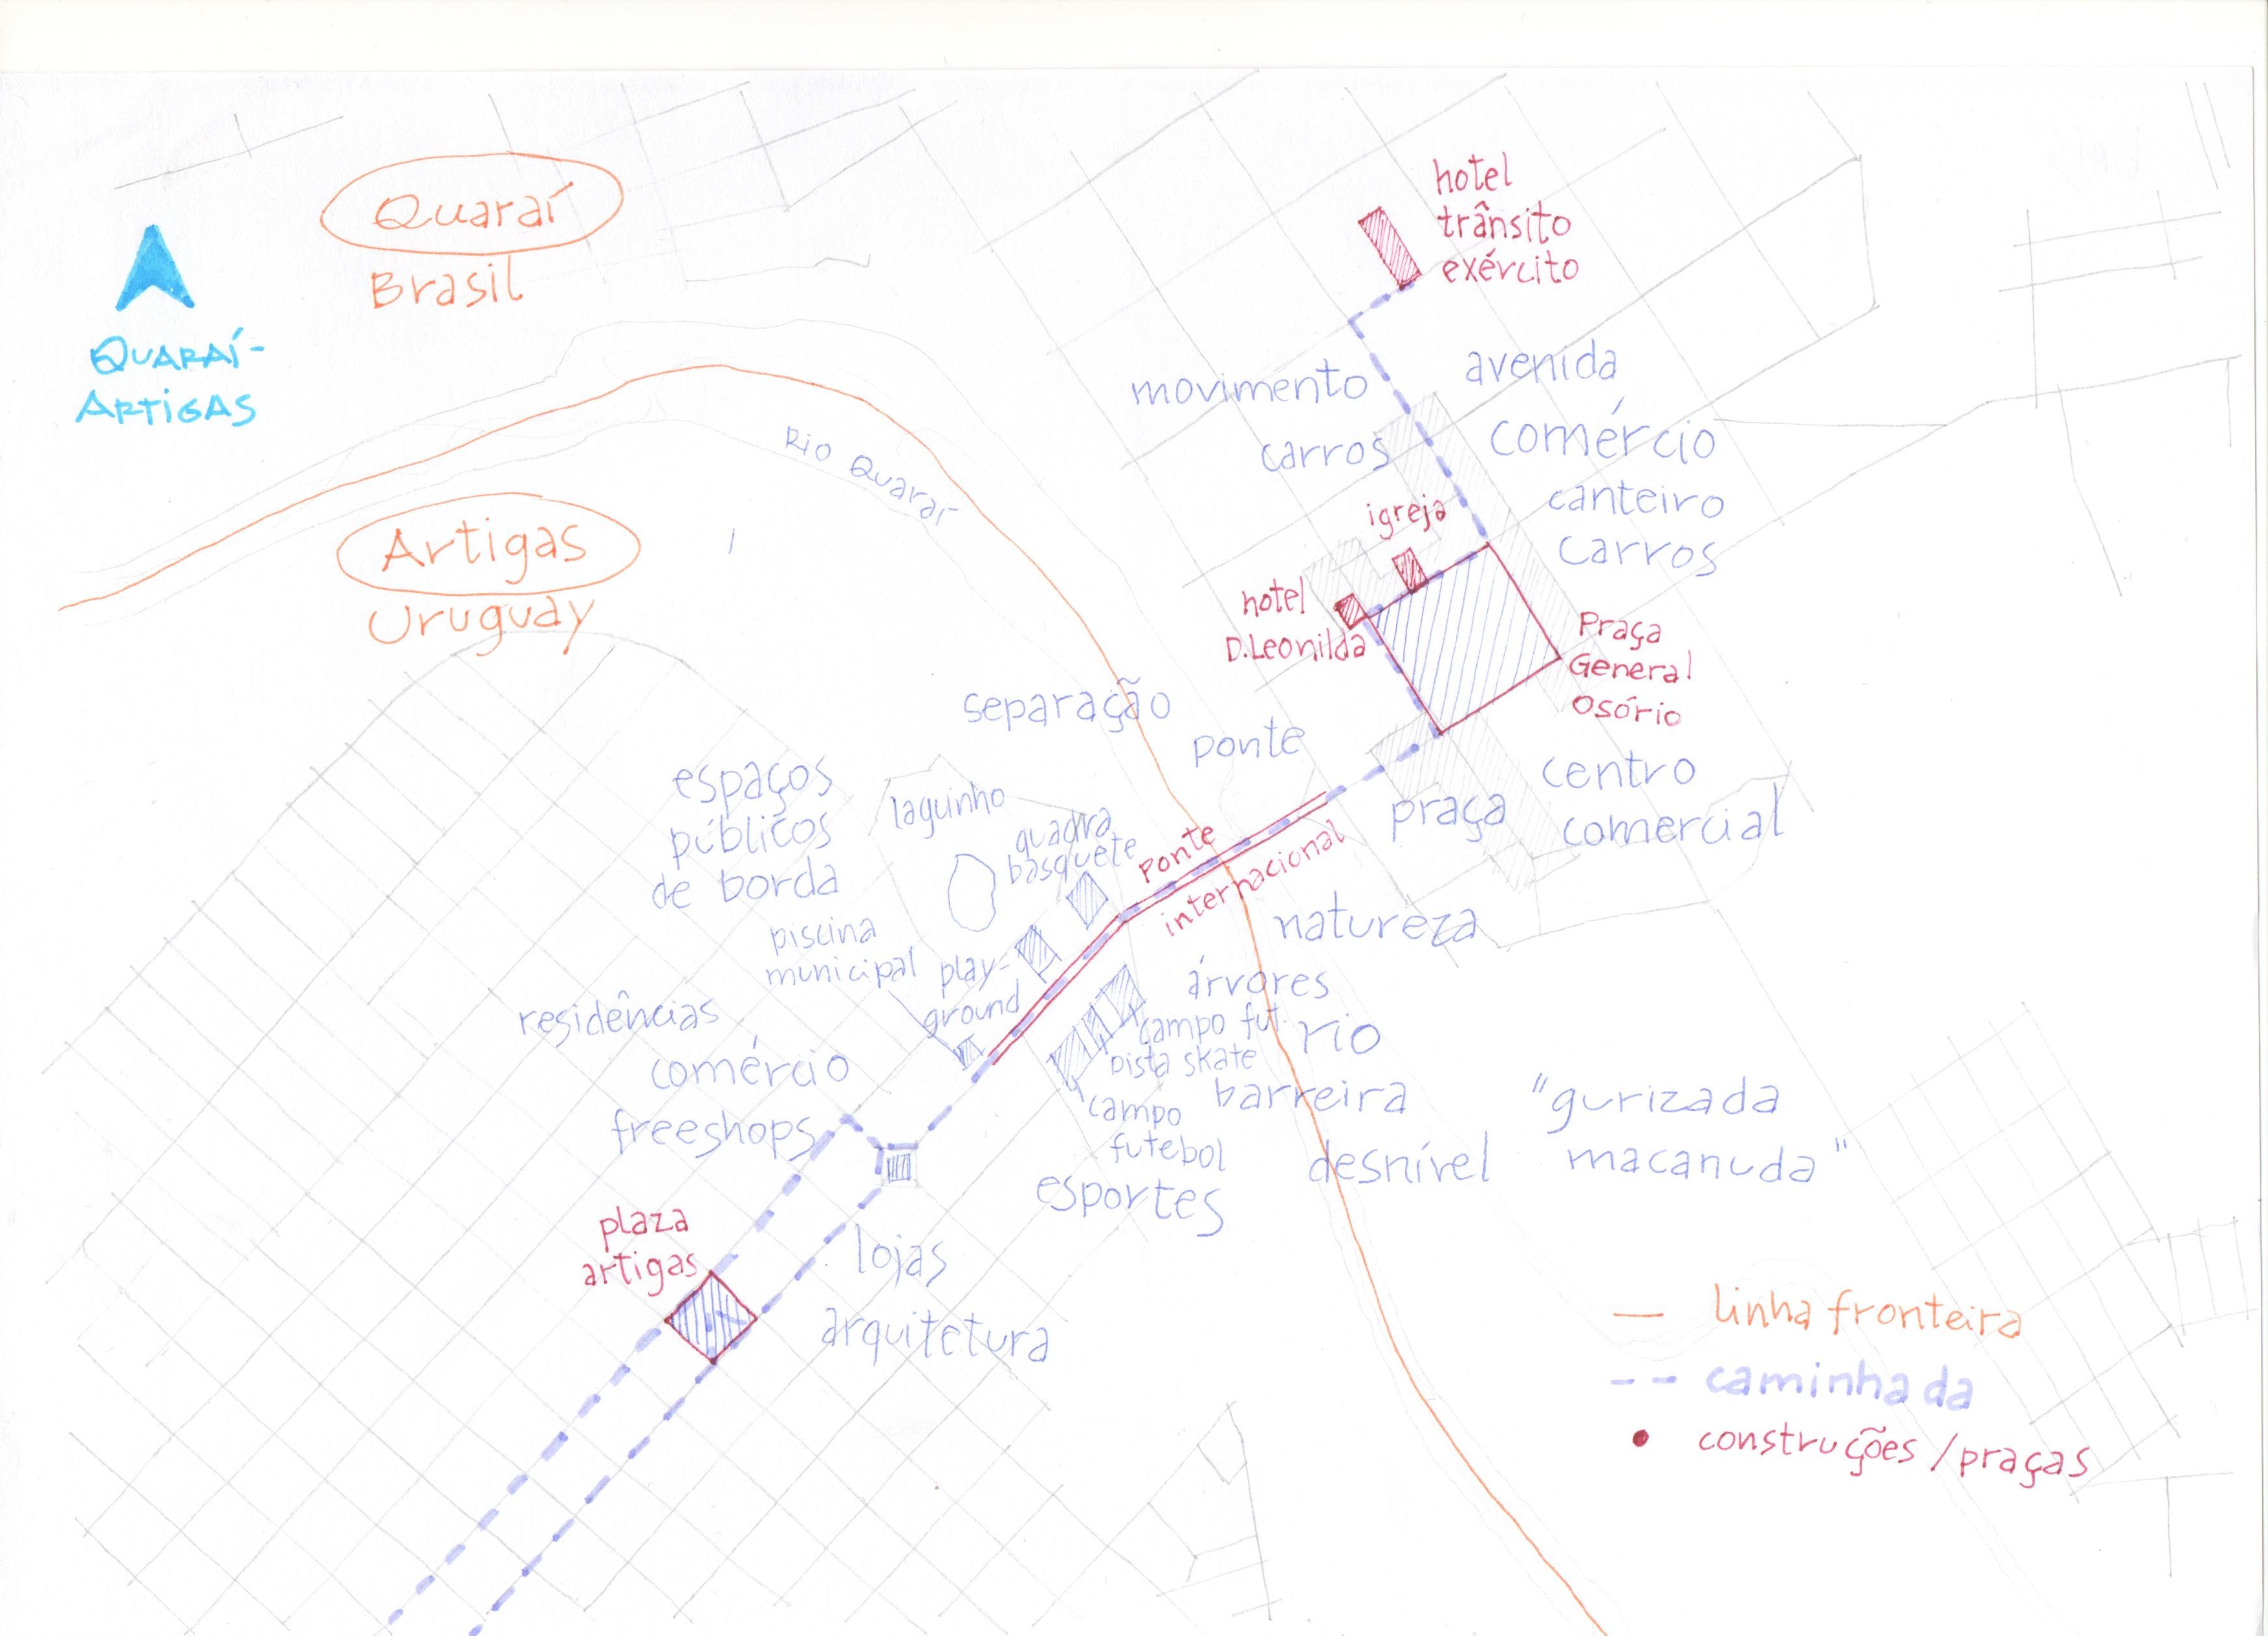 Quaraí
Brasil
QUARAÍ-
ARTIGAS
Artigas
Uruguay
Rio Quaraí
hotel
trânsito
exército
movimento
carros
avenida
comércio
canteiro
carros
igreja
hotel
D.Leonilda
Praça
General
Osório
separação
ponte
praça
centro
comercial
espaços
públicos
de borda
laguinho
quadra
basquete
ponte
internacional
piscina
municipal
play-
ground
natureza
árvores
campo fut.
pista skate
campo
futebol
esportes
rio
barreira
desnível
"gurizada
macanuda"
residências
comércio
freeshops
plaza
artigas
lojas
arquitetura
linha fronteira
caminhada
construções/praças